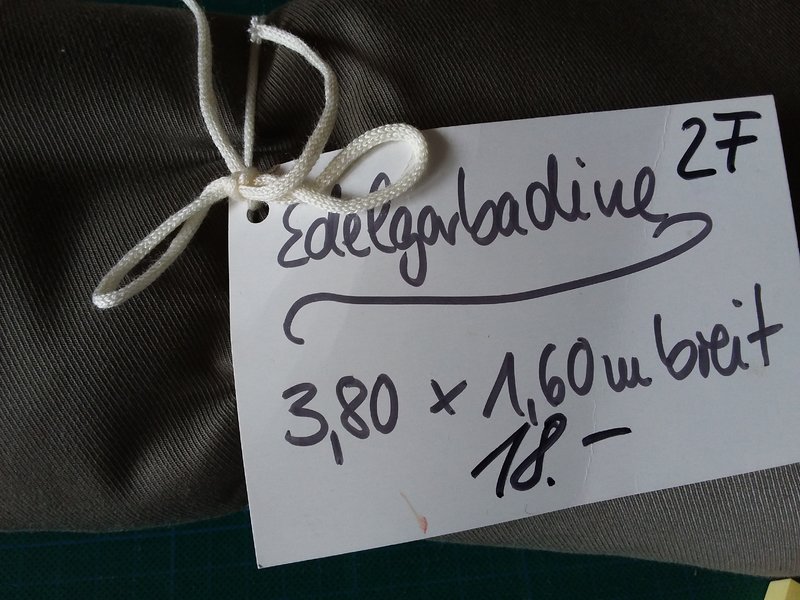 27
Edelgarbadine
3,80 x 1,60m breit
18.-